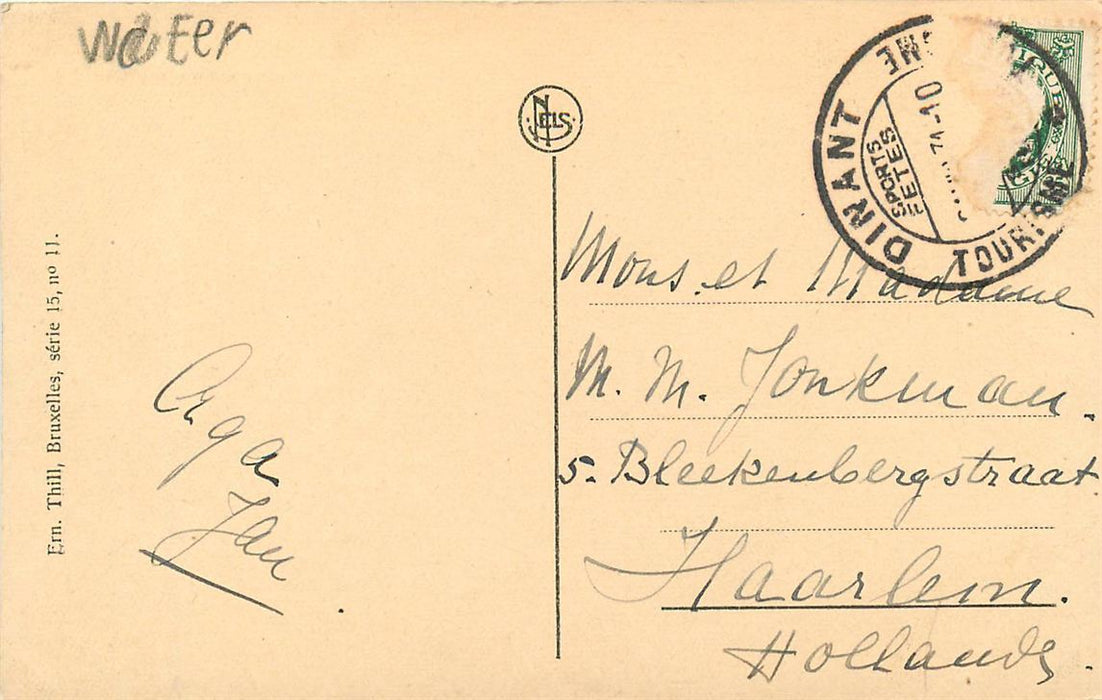 Water
NELS
DINANT
TOURISME
SPORTS
FETES
Mons. et Madame
M. M. Jonkman.
5. Bleekenbergstraat
Haarlem.
Hollande.
Aga
Jan
Ern. Thill, Bruxelles, série 15, no 11.